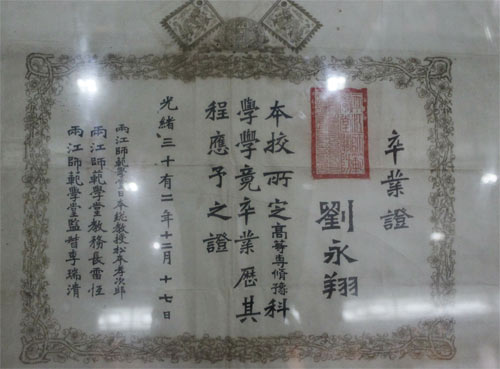 卒業證
劉永翔
本校所定高等專修豫科
學學竟卒業歷其
程應予之證
光緒三十有二年十二月十七日
兩江師範學堂日本總教授松本孝次郎
兩江師範學堂教務長雷恆
兩江師範學堂監督李瑞清